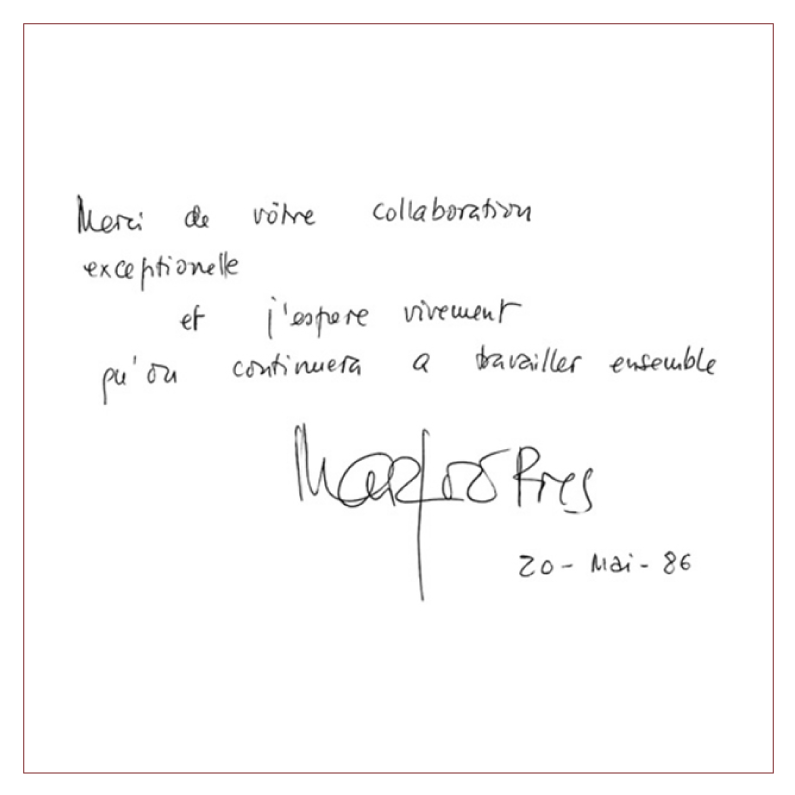 Merci de vôtre collaboration
exceptionelle
et j'espere vivement
qu'on continuera a travailler ensemble
Maria João Pires
20 - Mai - 86